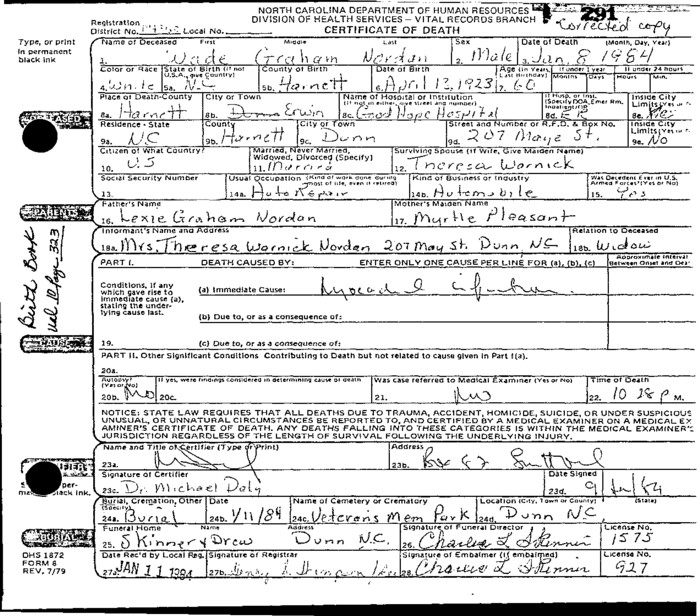 NORTH CAROLINA DEPARTMENT OF HUMAN RESOURCES
DIVISION OF HEALTH SERVICES - VITAL RECORDS BRANCH
291
Corrected copy
Registration District No. Local No.
CERTIFICATE OF DEATH
Type, or print in permanent black ink
Name of Deceased First Middle Last Sex Date of Death (Month, Day, Year)
1. Wade Graham Nordan 2. Male 3. Jan. 8 1984
Color or Race State of Birth (If not U.S.A., give Country) County of Birth Date of Birth Age (In Years Last Birthday) If under 1 year Months Days If under 24 hours Hours Min.
4. White 5a. N.C 5b. Harnett 6. April 13, 1923 7. 60
Place of Death-County City or Town Name of Hospital or Institution (If not in either, give street and number) If Hosp. or Inst. (Specify DOA, Emer Rm. Inpatient) Inside City Limits (Yes or No)
8a. Harnett 8b. Erwin 8c. Good Hope Hospital 8d. ER 8e.
Residence - State County City or Town Street and Number or R.F.D. & Box No. Inside City Limits
9a. NC 9b. Harnett 9c. Dunn 9d. 207 Maye St. 9e. No
Citizen of What Country? Married, Never Married, Widowed, Divorced (Specify) Surviving Spouse (If Wife, Give Maiden Name)
10. US 11. Married 12. Theresa Warnick
Social Security Number Usual Occupation (Kind of work done during most of life, even if retired) Kind of Business or Industry Was Decedent Ever in U.S. Armed Forces? (Yes or No)
13. 14a. Auto Repair 14b. Automobile 15. Yes
PARENTS
Father's Name Mother's Maiden Name
16. Lexie Graham Nordan 17. Myrtle Pleasant
Informant's Name and Address Relation to Deceased
18a. Mrs. Theresa Warnick Nordan 207 May St. Dunn, NC 18b. Widow
Birth Book Vol 10 Page 323
PART I. DEATH CAUSED BY: ENTER ONLY ONE CAUSE PER LINE FOR (a), (b), (c) Approximate Interval Between Onset and Death
Conditions, if any which gave rise to immediate cause (a), stating the underlying cause last.
(a) Immediate Cause: Myocardial infarction
(b) Due to, or as a consequence of:
19. (c) Due to, or as a consequence of:
PART II. Other Significant Conditions Contributing to Death but not related to cause given in Part I(a).
20a.
Autopsy? (Yes or No) If yes, were findings considered in determining cause of death Was case referred to Medical Examiner (Yes or No) Time of Death
20b. No 20c. 21. No 22. 10 28 P M.
NOTICE: STATE LAW REQUIRES THAT ALL DEATHS DUE TO TRAUMA, ACCIDENT, HOMICIDE, SUICIDE, OR UNDER SUSPICIOUS
UNUSUAL, OR UNNATURAL CIRCUMSTANCES BE REPORTED TO, AND CERTIFIED BY A MEDICAL EXAMINER ON A MEDICAL EX
AMINER'S CERTIFICATE OF DEATH. ANY DEATHS FALLING INTO THESE CATEGORIES IS WITHIN THE MEDICAL EXAMINER'S
JURISDICTION REGARDLESS OF THE LENGTH OF SURVIVAL FOLLOWING THE UNDERLYING INJURY.
Name and Title of Certifier (Type or Print) Address
23a. 23b. Box
Signature of Certifier Date Signed
23c. Dr. Michael Daly 23d. 9 Jan 84
Burial, Cremation, Other (Specify) Date Name of Cemetery or Crematory Location (City, Town or County) (State)
24a. Burial 24b. 1/11/84 24c. Veterans Mem Park 24d. Dunn N.C.
BURIAL
Funeral Home Name Address Signature of Funeral Director License No.
25. Skinner & Drew Dunn N.C. 26. Charles L Skinner 1575
DHS 1872
FORM 8
REV. 7/79
Date Rec'd by Local Reg. Signature of Registrar Signature of Embalmer (If embalmed) License No.
27a. JAN 11 1984 27b. 28. Charles L Skinner 927